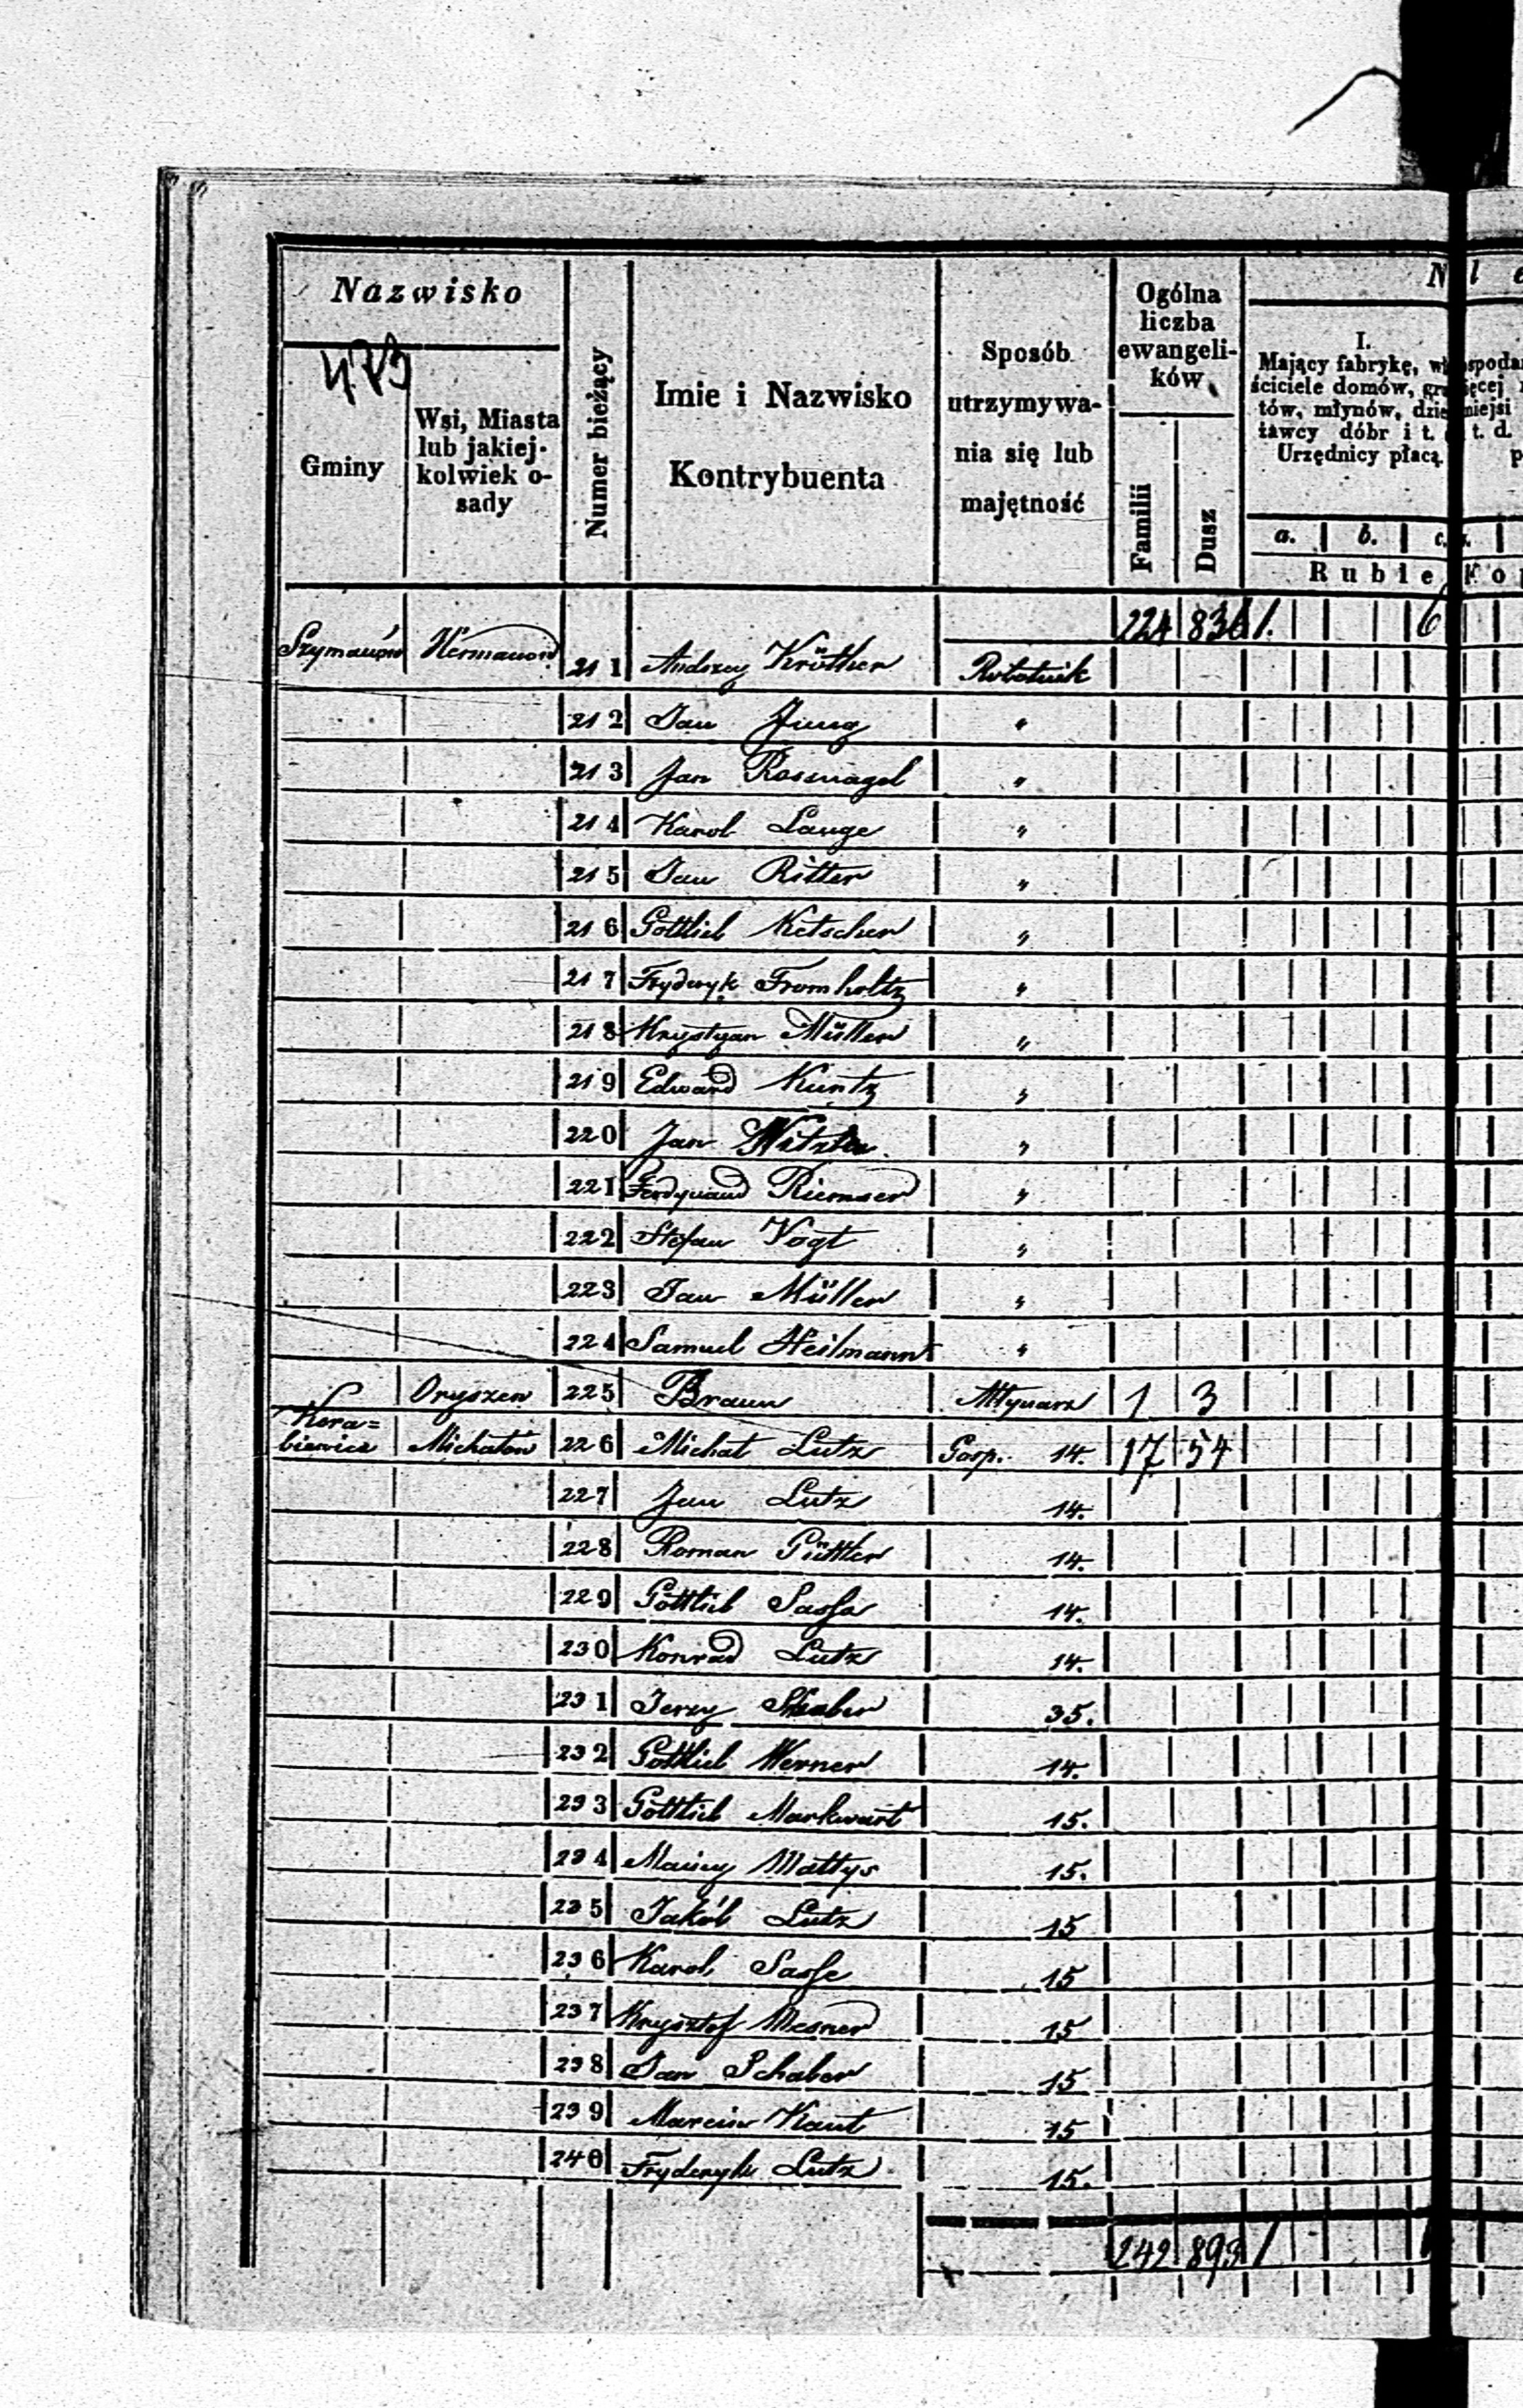 Nazwisko
473
Gminy
Wsi, Miasta
lub jakiej-
kolwiek o-
sady
Numer bieżący
Imie i Nazwisko
Kontrybuenta
Sposób
utrzymywa-
nia się lub
majętność
Ogólna
liczba
ewangeli-
ków
Familii
Dusz
N l e
I.
Mający fabrykę, wł
ściciele domów, gru
tów, młynów, dzie
żawcy dóbr i t.
Urzędnicy płacą
a. b. c.
Rubie Kop
224 836 1. 6
Szymanów Hermanów 211 Andrzey Kröther Robotnik
212 Jan Jung "
213 Jan Rosnagel "
214 Karol Lange "
215 Jan Ritter "
216 Gottlieb Ketscher "
217 Fryderyk Fromholtz "
218 Krystyan Müller "
219 Edward Kuntz "
220 Jan "
221 Ferdynand Riemser "
222 Stefan Vogt "
223 Jan Müller "
224 Samuel Heilmann "
Oryszew 225 Braun Młynarz 1 3
Kora=
biewice Michałów 226 Michał Lutz Gosp. 14. 17 54
227 Jan Lutz 14.
228 Roman Güttler 14.
229 Gottlieb Sasse 14.
230 Konrad Lutz 14.
231 Jerzy Shaber 35.
232 Gottlieb Werner 14.
233 Gottlieb Markwart 15.
234 Maciey Mattys 15.
235 Jakób Lutz 15
236 Karol Sasse 15
237 Krysztof Mesner 15
238 Jan Schaber 15
239 Marcin Kant 15
240 Fryderyk Lutz 15.
242 893 1